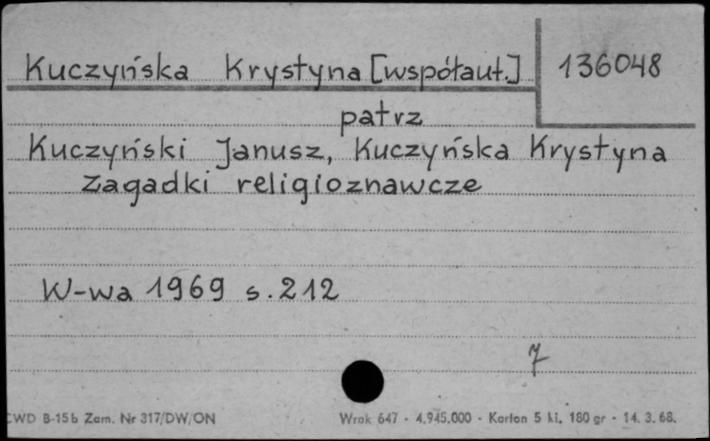 Kuczyńska Krystyna [współaut.] 136048
patrz
Kuczyński Janusz, Kuczyńska Krystyna
Zagadki religioznawcze
W-wa 1969 s. 212
7
CWD B-15b Zam. Nr 317/DW/ON Wrok 647 - 4.945.000 - Karton 5 kl. 180 gr - 14.3.68.